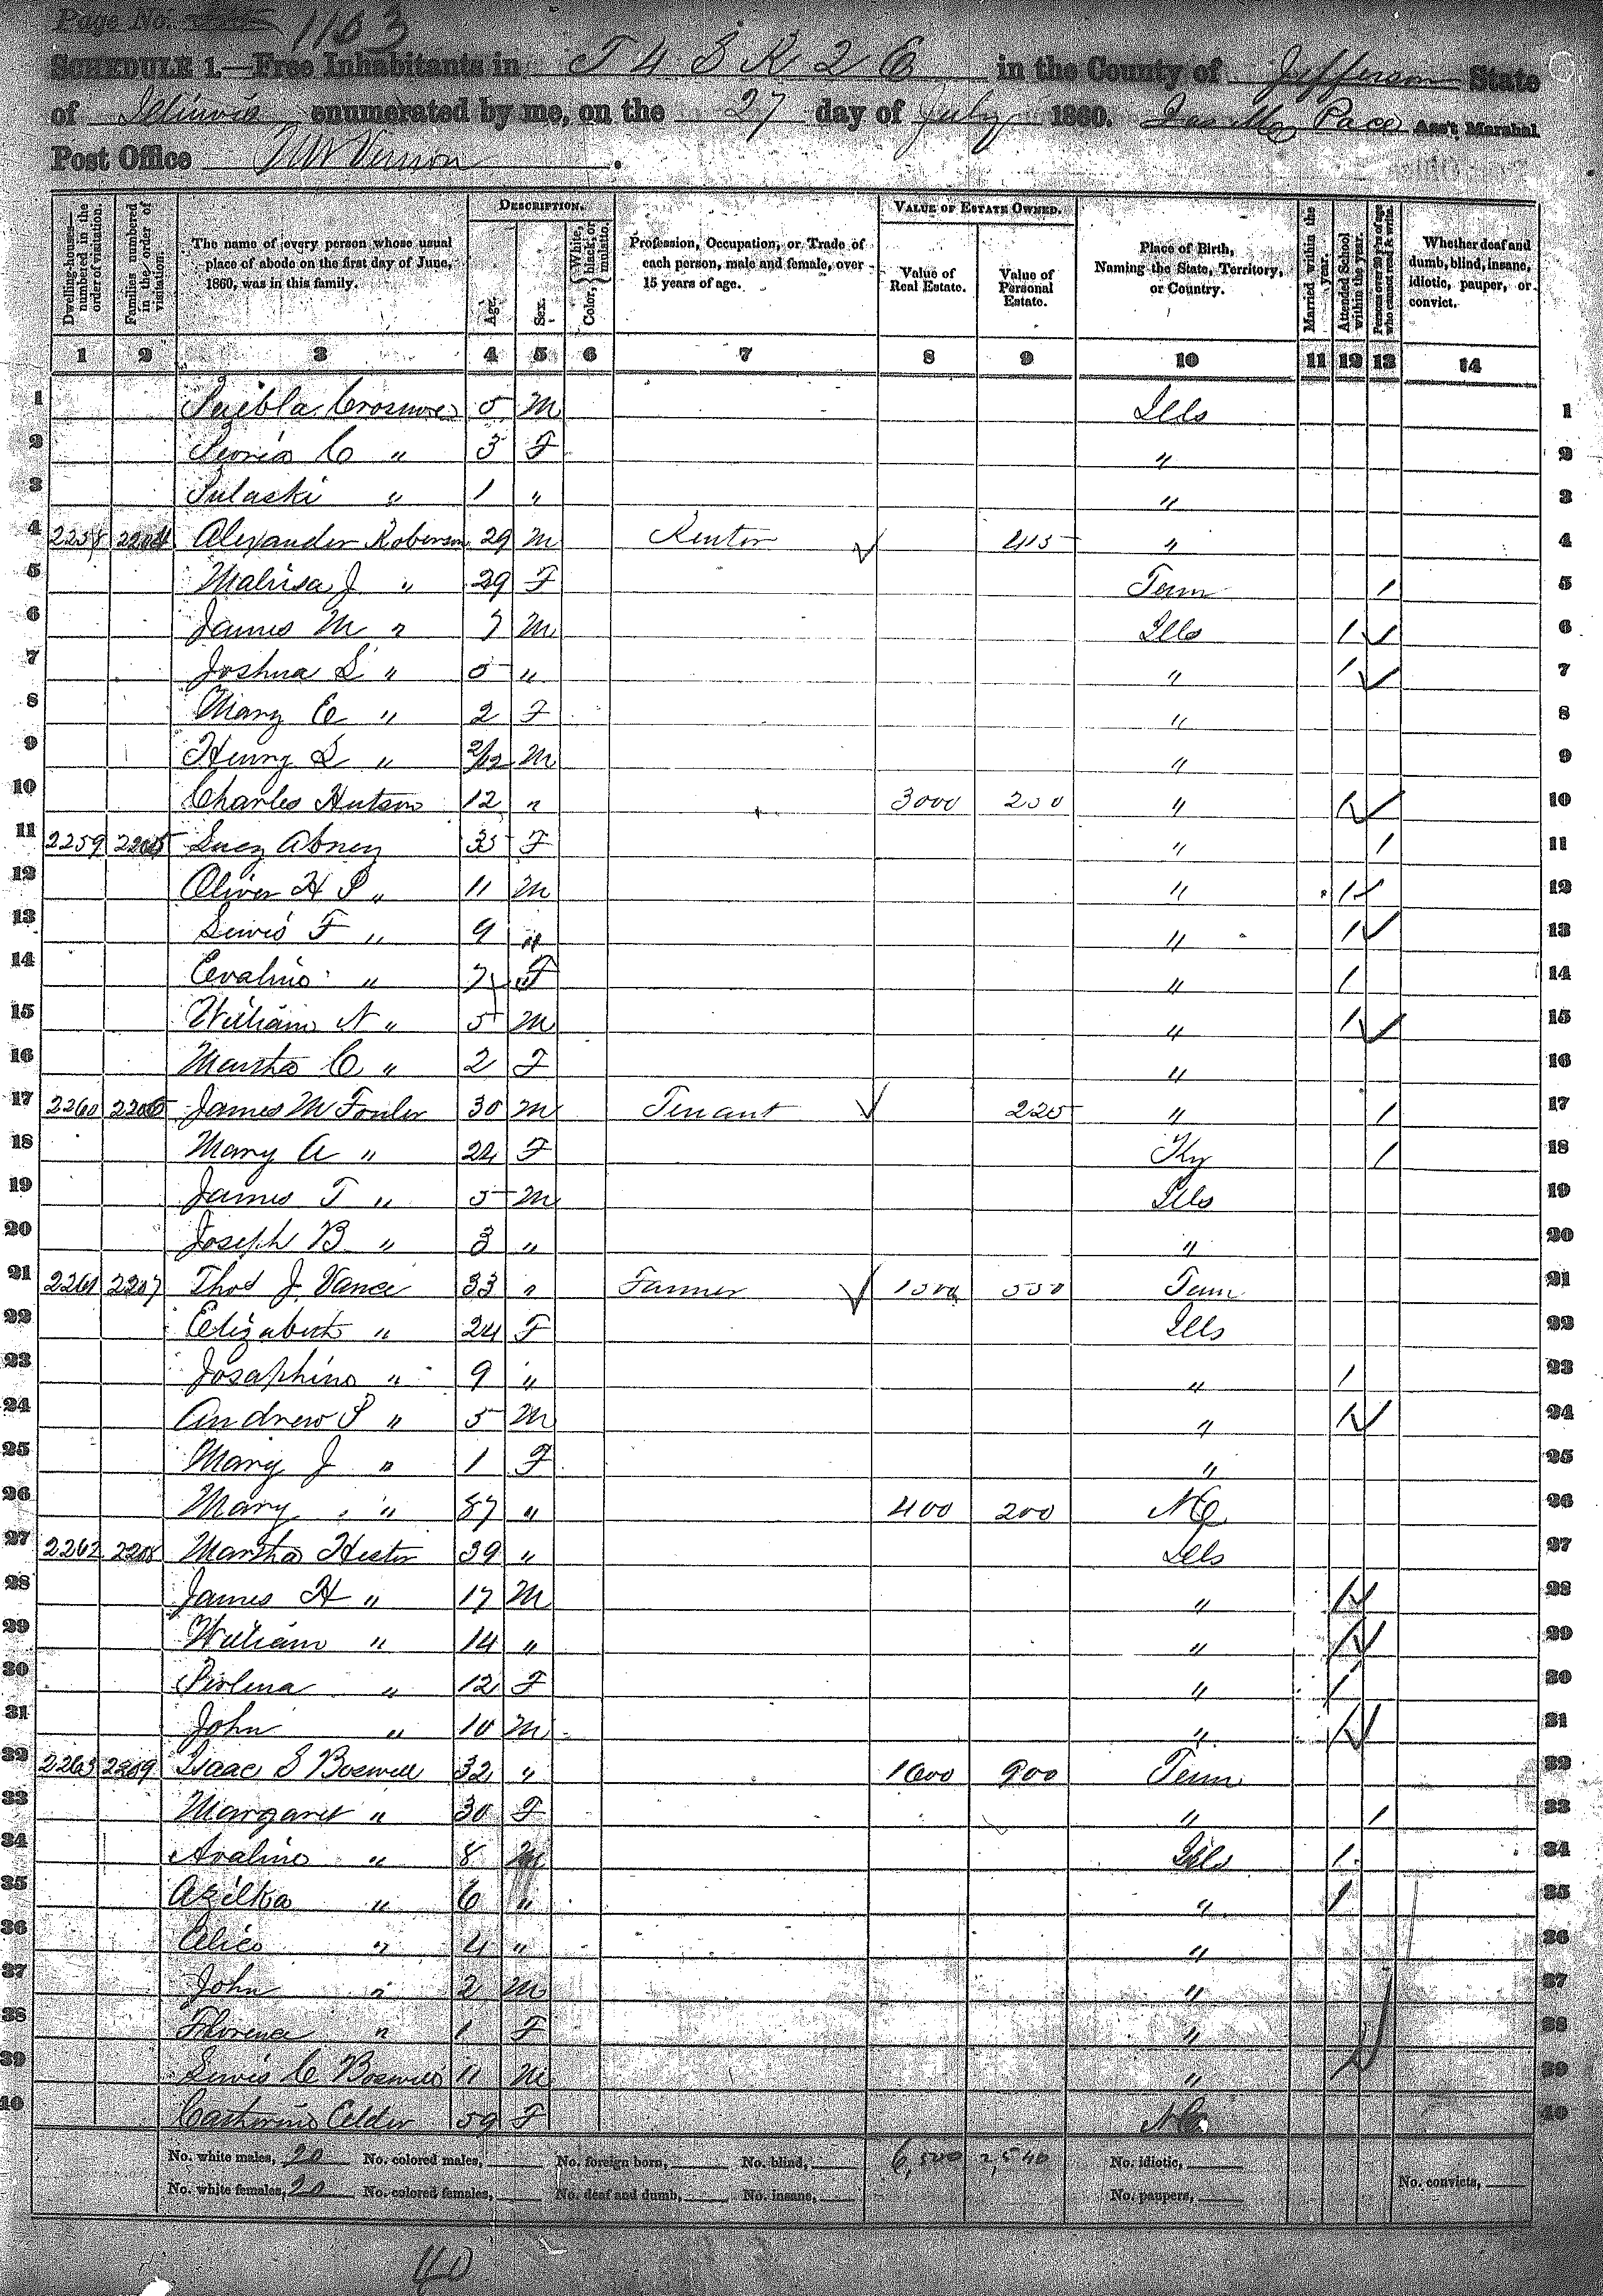 Page No. 1103
SCHEDULE 1.—Free Inhabitants in T 4 S R 2 E in the County of Jefferson State
of Illinois enumerated by me, on the 27 day of July 1860. Jas M Pace Ass't Marshal
Post Office Mt Vernon.
Dwelling-houses—numbered in the order of visitation. Families numbered in the order of visitation. The name of every person whose usual place of abode on the first day of June, 1860, was in this family. DESCRIPTION. Age. Sex. Color, White, black, or mulatto. Profession, Occupation, or Trade of each person, male and female, over 15 years of age. VALUE OF ESTATE OWNED. Value of Real Estate. Value of Personal Estate. Place of Birth, Naming the State, Territory, or Country. Married within the year. Attended School within the year. Persons over 20 y'rs of age who cannot read & write. Whether deaf and dumb, blind, insane, idiotic, pauper, or convict.
1 2 3 4 5 6 7 8 9 10 11 12 13 14
1 5 M Ills 1
2 C " 3 F " 2
3 Pulaski " 1 " " 3
4 2258 2204 Alexander Roberson 29 M Renter 415 " 4
5 J " 29 F Tenn / 5
6 James M " 7 M Ills / 6
7 Joshua S " 5 " " / 7
8 Mary E " 2 F " 8
9 Henry S " 2/12 M " 9
10 Charles Hutson 12 " 3000 250 " / 10
11 2259 2205 Lucy Abney 35 F " / 11
12 Oliver H P " 11 M " / 12
13 Lewis F " 9 " " / 13
14 Evaline " 7 F " / 14
15 William N " 5 M " / 15
16 Martha C " 2 F " 16
17 2260 2206 James M Fowler 30 M Tenant 225 " / 17
18 Mary A " 24 F Ky / 18
19 James T " 5 M Ills 19
20 Joseph B " 3 " " 20
21 2261 2207 Thos J Vance 33 " Farmer 1500 550 Tenn 21
22 Elizabeth " 24 F Ills 22
23 Josaphine " 9 " " / 23
24 Andrew P " 5 M " / 24
25 Mary J " 1 F " 25
26 Mary " 87 " 400 200 NC 26
27 2262 2208 Martha Hester 39 " Ills 27
28 James H " 17 M " / 28
29 William " 14 " " / 29
30 Perlina " 12 F " / 30
31 John " 10 M " / 31
32 2263 2209 Isaac S Boswell 32 " 1600 900 Tenn 32
33 Margaret " 30 F " / 33
34 Avaline " 8 Ills / 34
35 Azilka " 6 " " / 35
36 Alice " 4 " " 36
37 John " 2 M " 37
38 Florence " 1 F " 38
39 Lewis C Boswell 11 M " / 39
40 Catherine Elder 59 F NC 40
No. white males, 20 No. colored males, No. foreign born, No. blind, 6,500 2,540 No. idiotic,
No. white females, 20 No. colored females, No. deaf and dumb, No. insane, No. paupers, No. convicts,
40